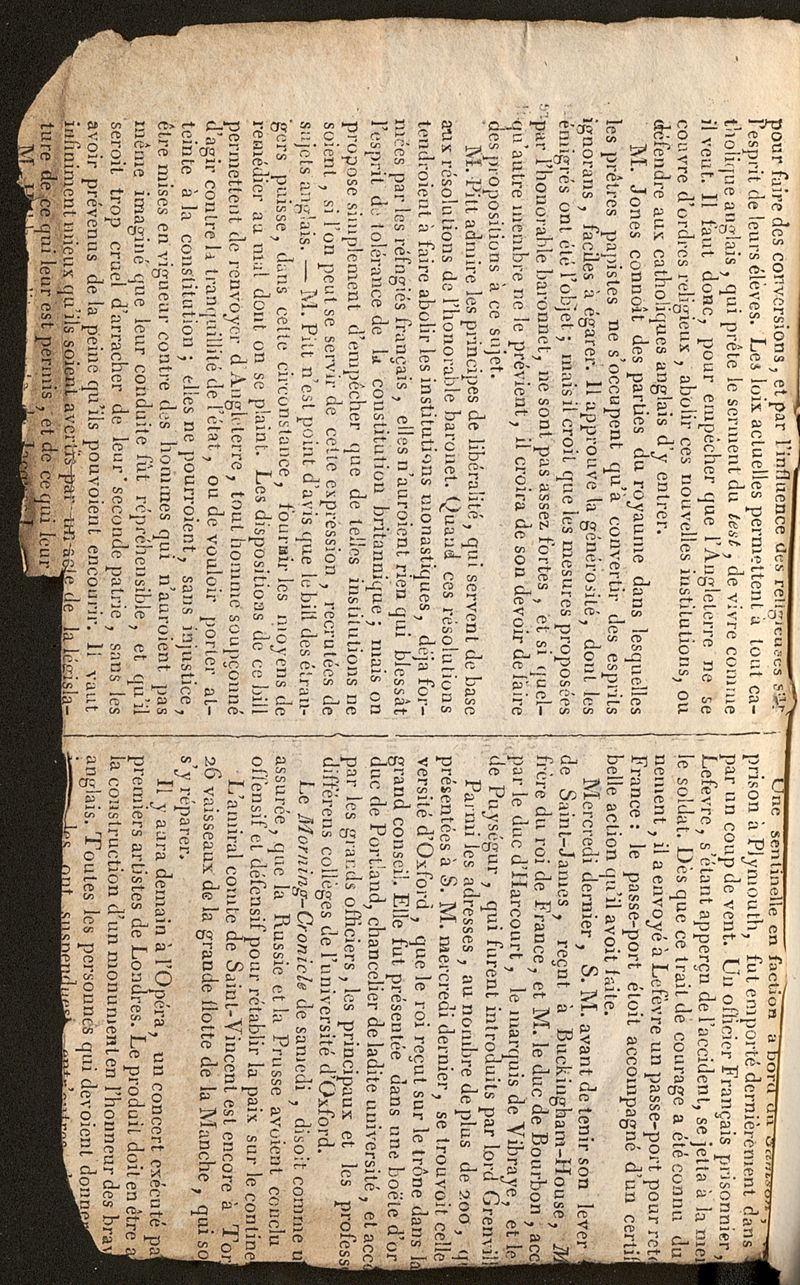 pour faire des conversions, et par l'influence des religieuses sur
l'esprit de leurs élèves. Les loix actuelles permettent à tout ca-
tholique anglais, qui prête le serment du test, de vivre comme
il veut. Il faut donc, pour empêcher que l'Angleterre ne se
couvre d'ordres religieux, abolir ces nouvelles institutions, ou
défendre aux catholiques anglais d'y entrer.
M. Jones connoît des parties du royaume dans lesquelles
les prêtres papistes ne s'occupent qu'à convertir des esprits
ignorans, faciles à égarer. Il approuve la générosité, dont les
émigrés ont été l'objet; mais il croit que les mesures proposées
par l'honorable baronnet, ne sont pas assez fortes, et si quel-
qu'autre membre ne le prévient, il croira de son devoir de faire
des propositions à ce sujet.
M. Pitt admire les principes de libéralité, qui servent de base
aux résolutions de l'honorable baronet. Quand ces résolutions
tendroient à faire abolir les institutions monastiques, déja for-
mées par les réfugiés français, elles n'auroient rien qui blessât
l'esprit de tolérance de la constitution britannique; mais on
propose simplement d'empêcher que de telles institutions ne
soient, si l'on peut se servir de cette expression, recrutées de
sujets anglais. — M. Pitt n'est point d'avis que le bill des étran-
gers puisse, dans cette circonstance, fournir les moyens de
remédier au mal dont on se plaint. Les dispositions de ce bill
permettent de renvoyer d'Angleterre, tout homme soupçonné
d'agir contre la tranquillité de l'état, ou de vouloir porter at-
teinte à la constitution; elles ne pourroient, sans injustice,
être mises en vigueur contre des hommes qui n'auroient pas
même imaginé que leur conduite fût répréhensible, et qu'il
seroit trop cruel d'arracher de leur seconde patrie, sans les
avoir prévenus de la peine qu'ils pouvoient encourir. Il vaut
infiniment mieux qu'ils soient avertis par un acte de la législa-
ture de ce qui leur est permis, et de ce qui leur
Une sentinelle en faction à bord du Samson,
prison à Plymouth, fut emporté dernièrement dans
par un coup de vent. Un officier Français prisonnier,
Lefevre, s'étant apperçn de l'accident, se jetta à la mer
le soldat. Dès que ce trait de courage a été connu du
nement, il a envoyé à Lefèvre un passe-port pour reto
France : le passe-port étoit accompagné d'un certif
belle action qu'il avoit faite.
Mercredi dernier, S. M. avant de tenir son lever
de Saint-James, reçnt à Buckingham-House, M
frère du roi de France, et M. le duc de Bourbon, acc
par le duc d'Harcourt, le marquis de Vibraye, et le
de Puységur, qui furent introduits par lord Grenvil
Parmi les adresses, au nombre de plus de 200, q
présentées à S. M. mercredi dernier, se trouvoit celle
versité d'Oxford, que le roi reçut sur le trône dans la
grand conseil. Elle fut présentée dans une boëte d'or
duc de Portland, chancelier de ladite université, et acco
par les grands officiers, les principaux et les profess
différens colléges de l'université d'Oxford.
Le Morning-Cronicle de samedi, disoit comme u
assurée, que la Russie et la Prusse avoient conclu
offensif et défensif pour rétablir la paix sur le contine
L'amiral comte de Saint-Vincent est encore à Tor
26 vaisseaux de la grande flotte de la Manche, qui so
s'y réparer.
Il y aura demain à l'Opéra, un concert exécuté pa
premiers artistes de Londres. Le produit doit en être a
la construction d'un monument en l'honneur des brav
anglais. Toutes les personnes qui devoient donner
les ont suspendues